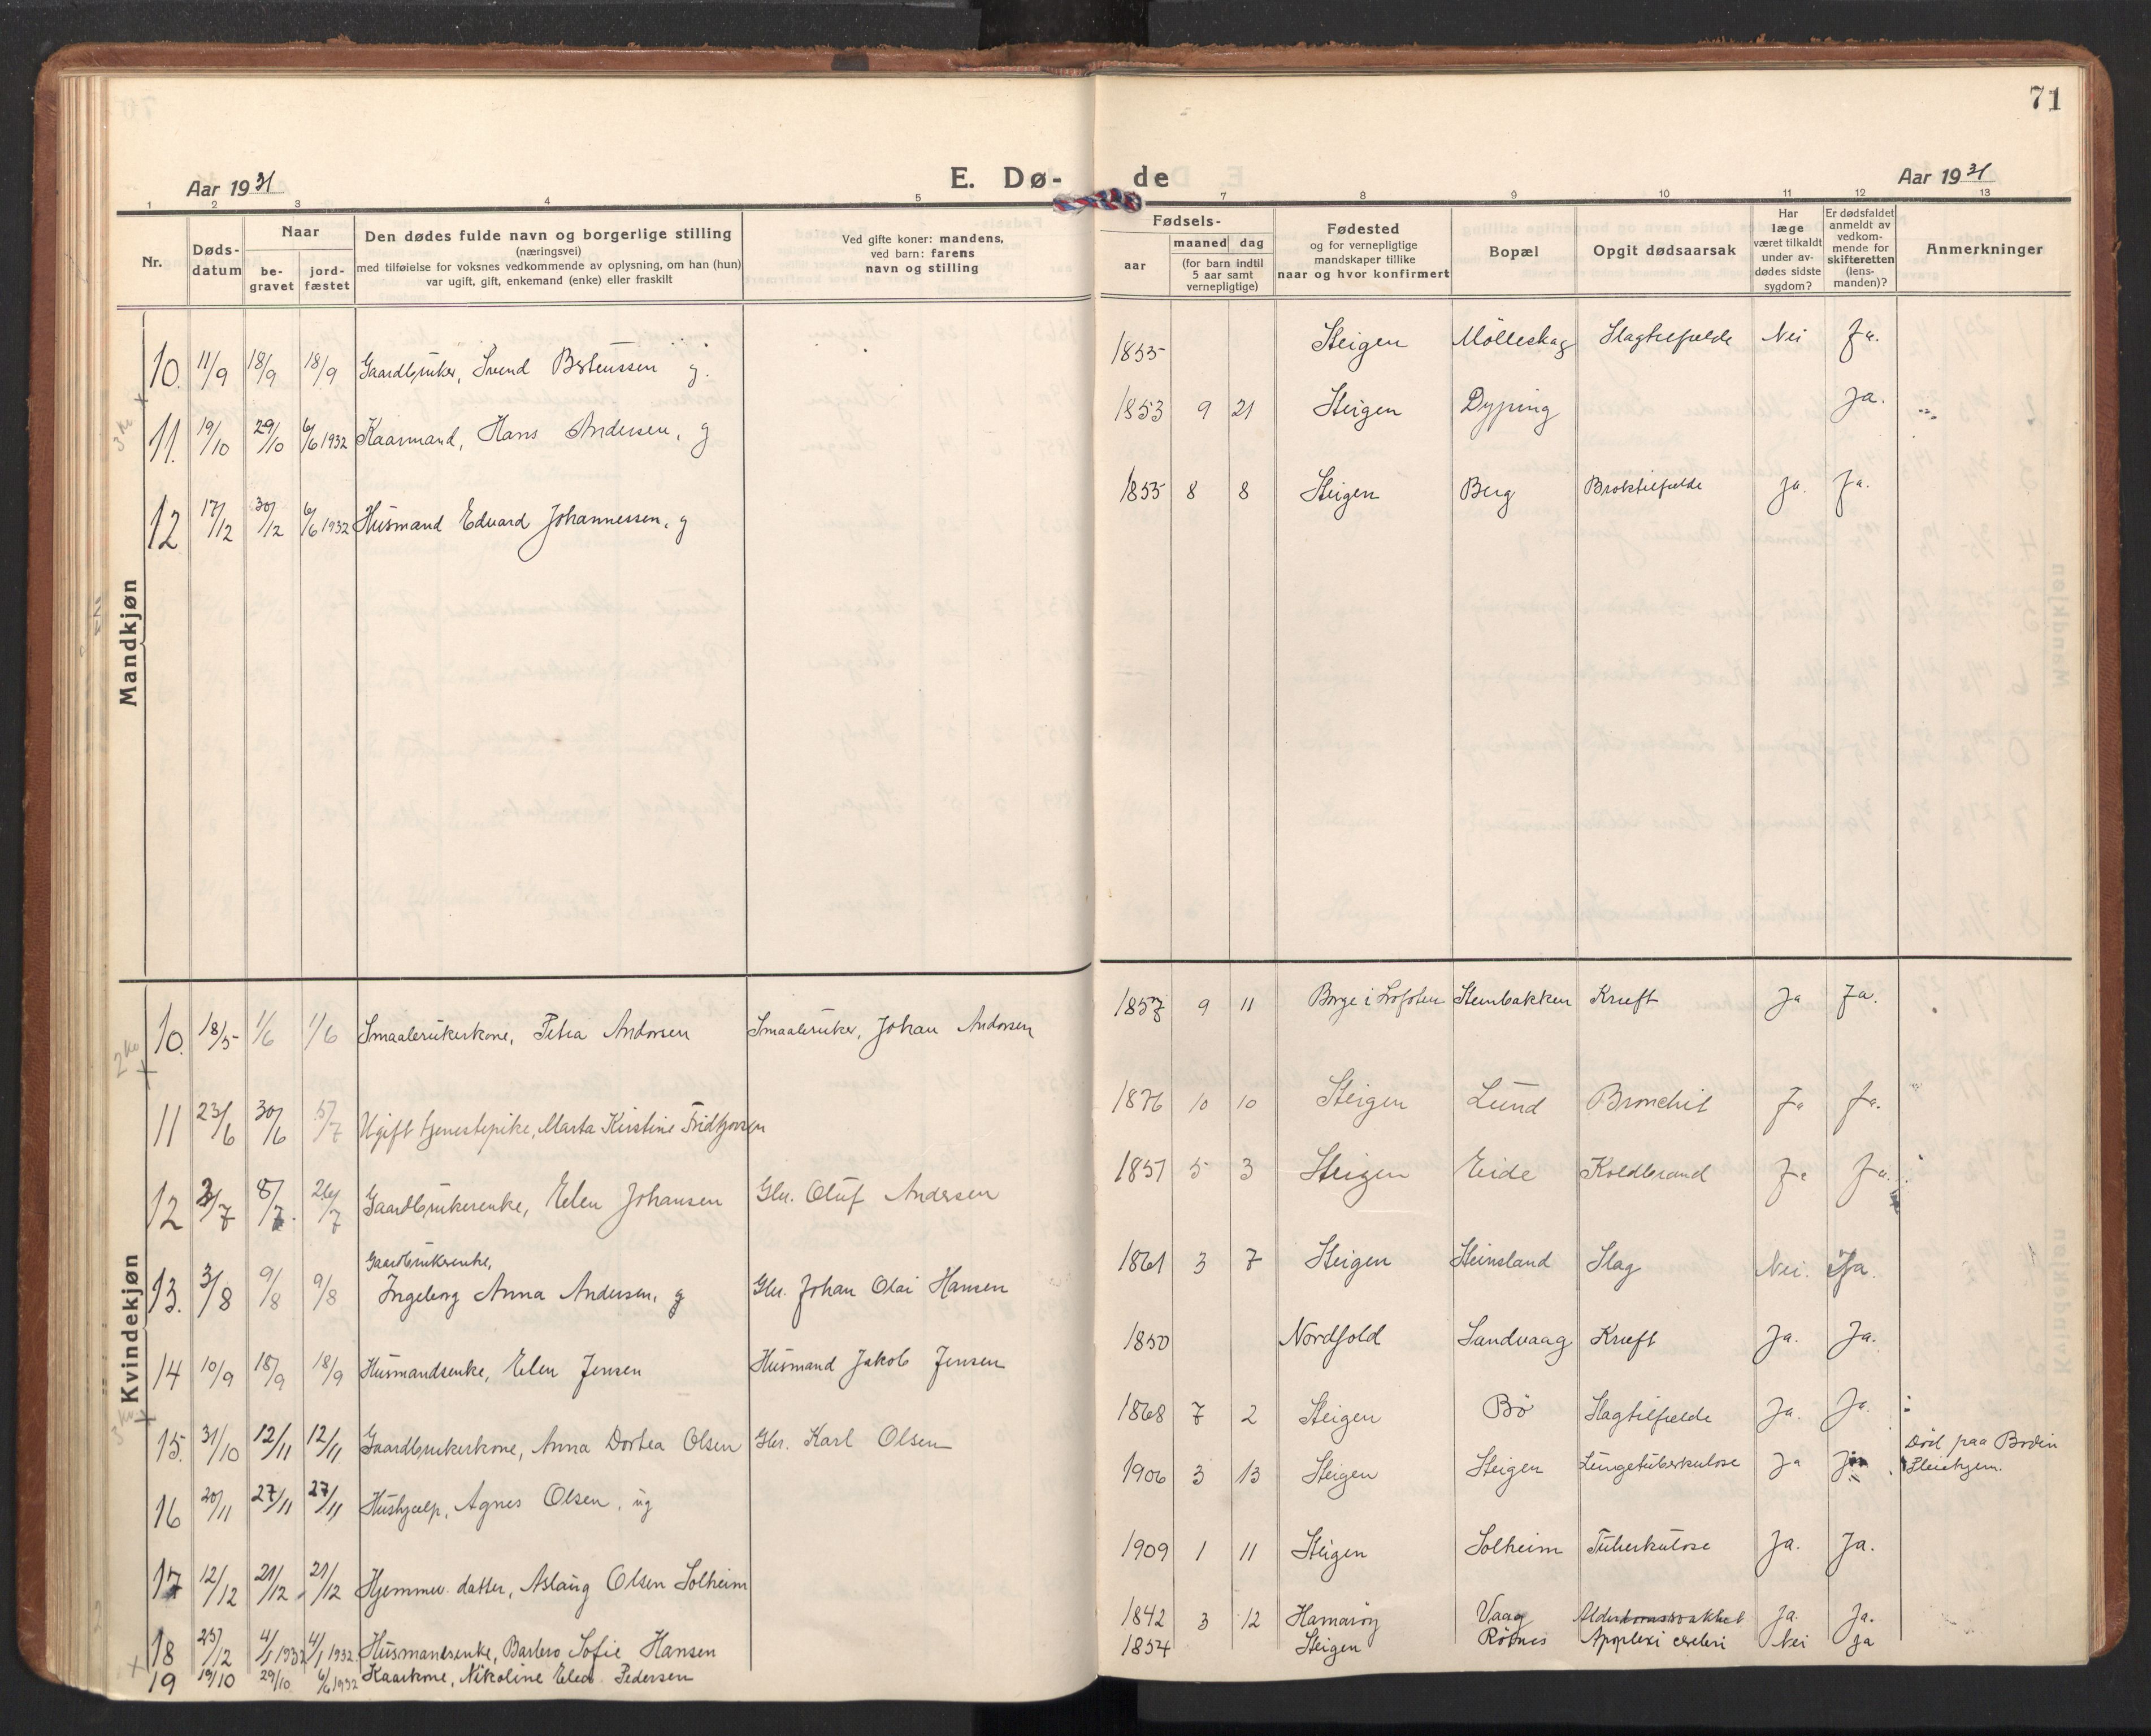 71
Aar 1931
E. Dø-
de
Aar 1931
1 2 3 4 5 7 8 9 10 11 12 13
Nr.
Døds-
datum
Naar
be-
gravet
jord-
fæstet
Den dødes fulde navn og borgerlige stilling
(næringsvei)
med tilføielse for voksnes vedkommende av oplysning, om han (hun)
var ugift, gift, enkemand (enke) eller fraskilt
Ved gifte koner: mandens,
ved barn: farens
navn og stilling
Fødsels-
aar
maaned dag
(for barn indtil
5 aar samt
vernepligtige)
Fødested
og for vernepligtige
mandskaper tillike
naar og hvor konfirmert
Bopæl
Opgit dødsaarsak
Har
læge
været tilkaldt
under av-
dødes sidste
sygdom?
Er dødsfaldet
anmeldt av
vedkom-
mende for
skifteretten
(lens-
manden)?
Anmerkninger
Mandkjøn
10. 11/9 18/9 18/9 Gaardbruker, Svend Berteussen g. 1855 Steigen Mölleskag Slagtilfælde Nei Ja.
11. 19/10 29/10 6/6 1932 Kaarmand, Hans Andersen, g 1853 9 21 Steigen Dyping Ja.
12 17/12 30/12 6/6 1932 Husmand Edvard Johannessen, g 1855 8 8 Steigen Berg Broktilfælde Ja. Ja.
Kvindekjøn
10. 18/5 1/6 1/6 Smaabrukerkone, Petra Andorsen Smaabruker, Johan Andorsen 1857 9 11 Borge i Lofoten Stenbakken Kræft Ja Ja.
11 23/6 30/6 5/7 Ugift tjenestepike, Marta Kirstine Fridtjovsen 1876 10 10 Steigen Lund Bronchit Ja Ja.
12 3/7 8/7. 26/7 Gaardbrukerenke, Elen Johansen Gbr. Oluf Andersen 1857 5 3 Steigen Eide Koldbrand Ja Ja.
Gaardbrukerenke,
13. 3/8 9/8 9/8 Ingeborg Anna Andersen, g Gbr. Johan Olai Hansen 1861 3 7 Steigen Steinsland Slag Nei. Ja.
14 10/9 18/9 18/9 Husmandsenke, Elen Jensen Husmand Jakob Jensen 1850 Nordfold Sandvaag Kræft Ja. Ja.
15. 31/10 12/11 12/11 Gaardbrukerkone, Anna Dortea Olsen Gbr. Karl Olsen 1868 7 2 Steigen Bö Slagtilfælde Ja. Ja.
16 20/11 27/11 27/11 Hushjælp, Agnes Olsen, ug 1906 3 13 Steigen Steigen Lungetuberkulose Ja Ja Död paa Bodin
Pleiehjem.
17 12/12 21/12 21/12 Hjemmev. datter, Aslaug Olsen Solheim 1909 1 11 Steigen Solheim Tuberkulose Ja. Ja.
18 23/12 4/1 1932 4/1 1932. Husmandsenke, Barbro Sofie Hansen 1842 3 12 Hamaröy Vaag Alderdomssvakhet Ja. Ja.
19 19/10 29/10. 6/6 1932 Kaarkone, Nikoline Elea Pedersen 1854 Steigen Rötnes Apoplexi cerebri Nei Ja